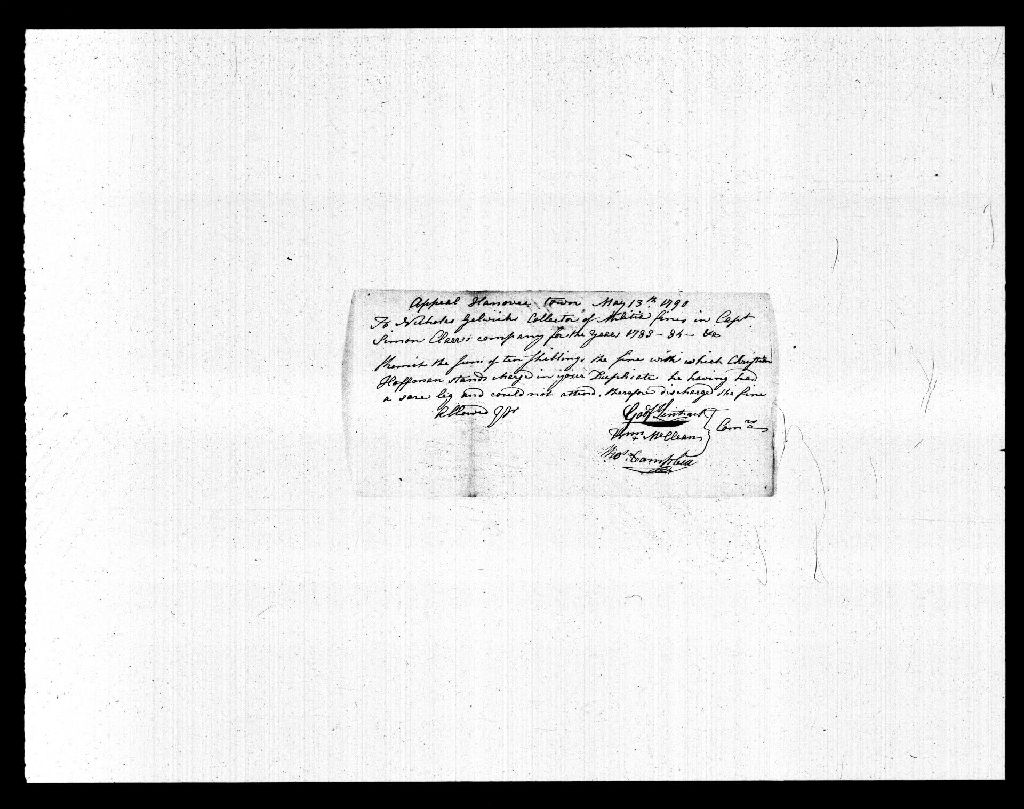 Appeal Hanover town May 13th 1790
To Nicholas Gelwicks Collector of Militia fines in Capt
Simon Clears company for the Year 1783 - 84 - &c
Remit the Sum of ten Shillings the fine with which Christian
Hoffman stands charg'd in your Duplicate he having had
a sore leg and could not attend. therefore discharge the fine
Godf. Lenhart
Wm McClean Comrs
Thos. Campbell